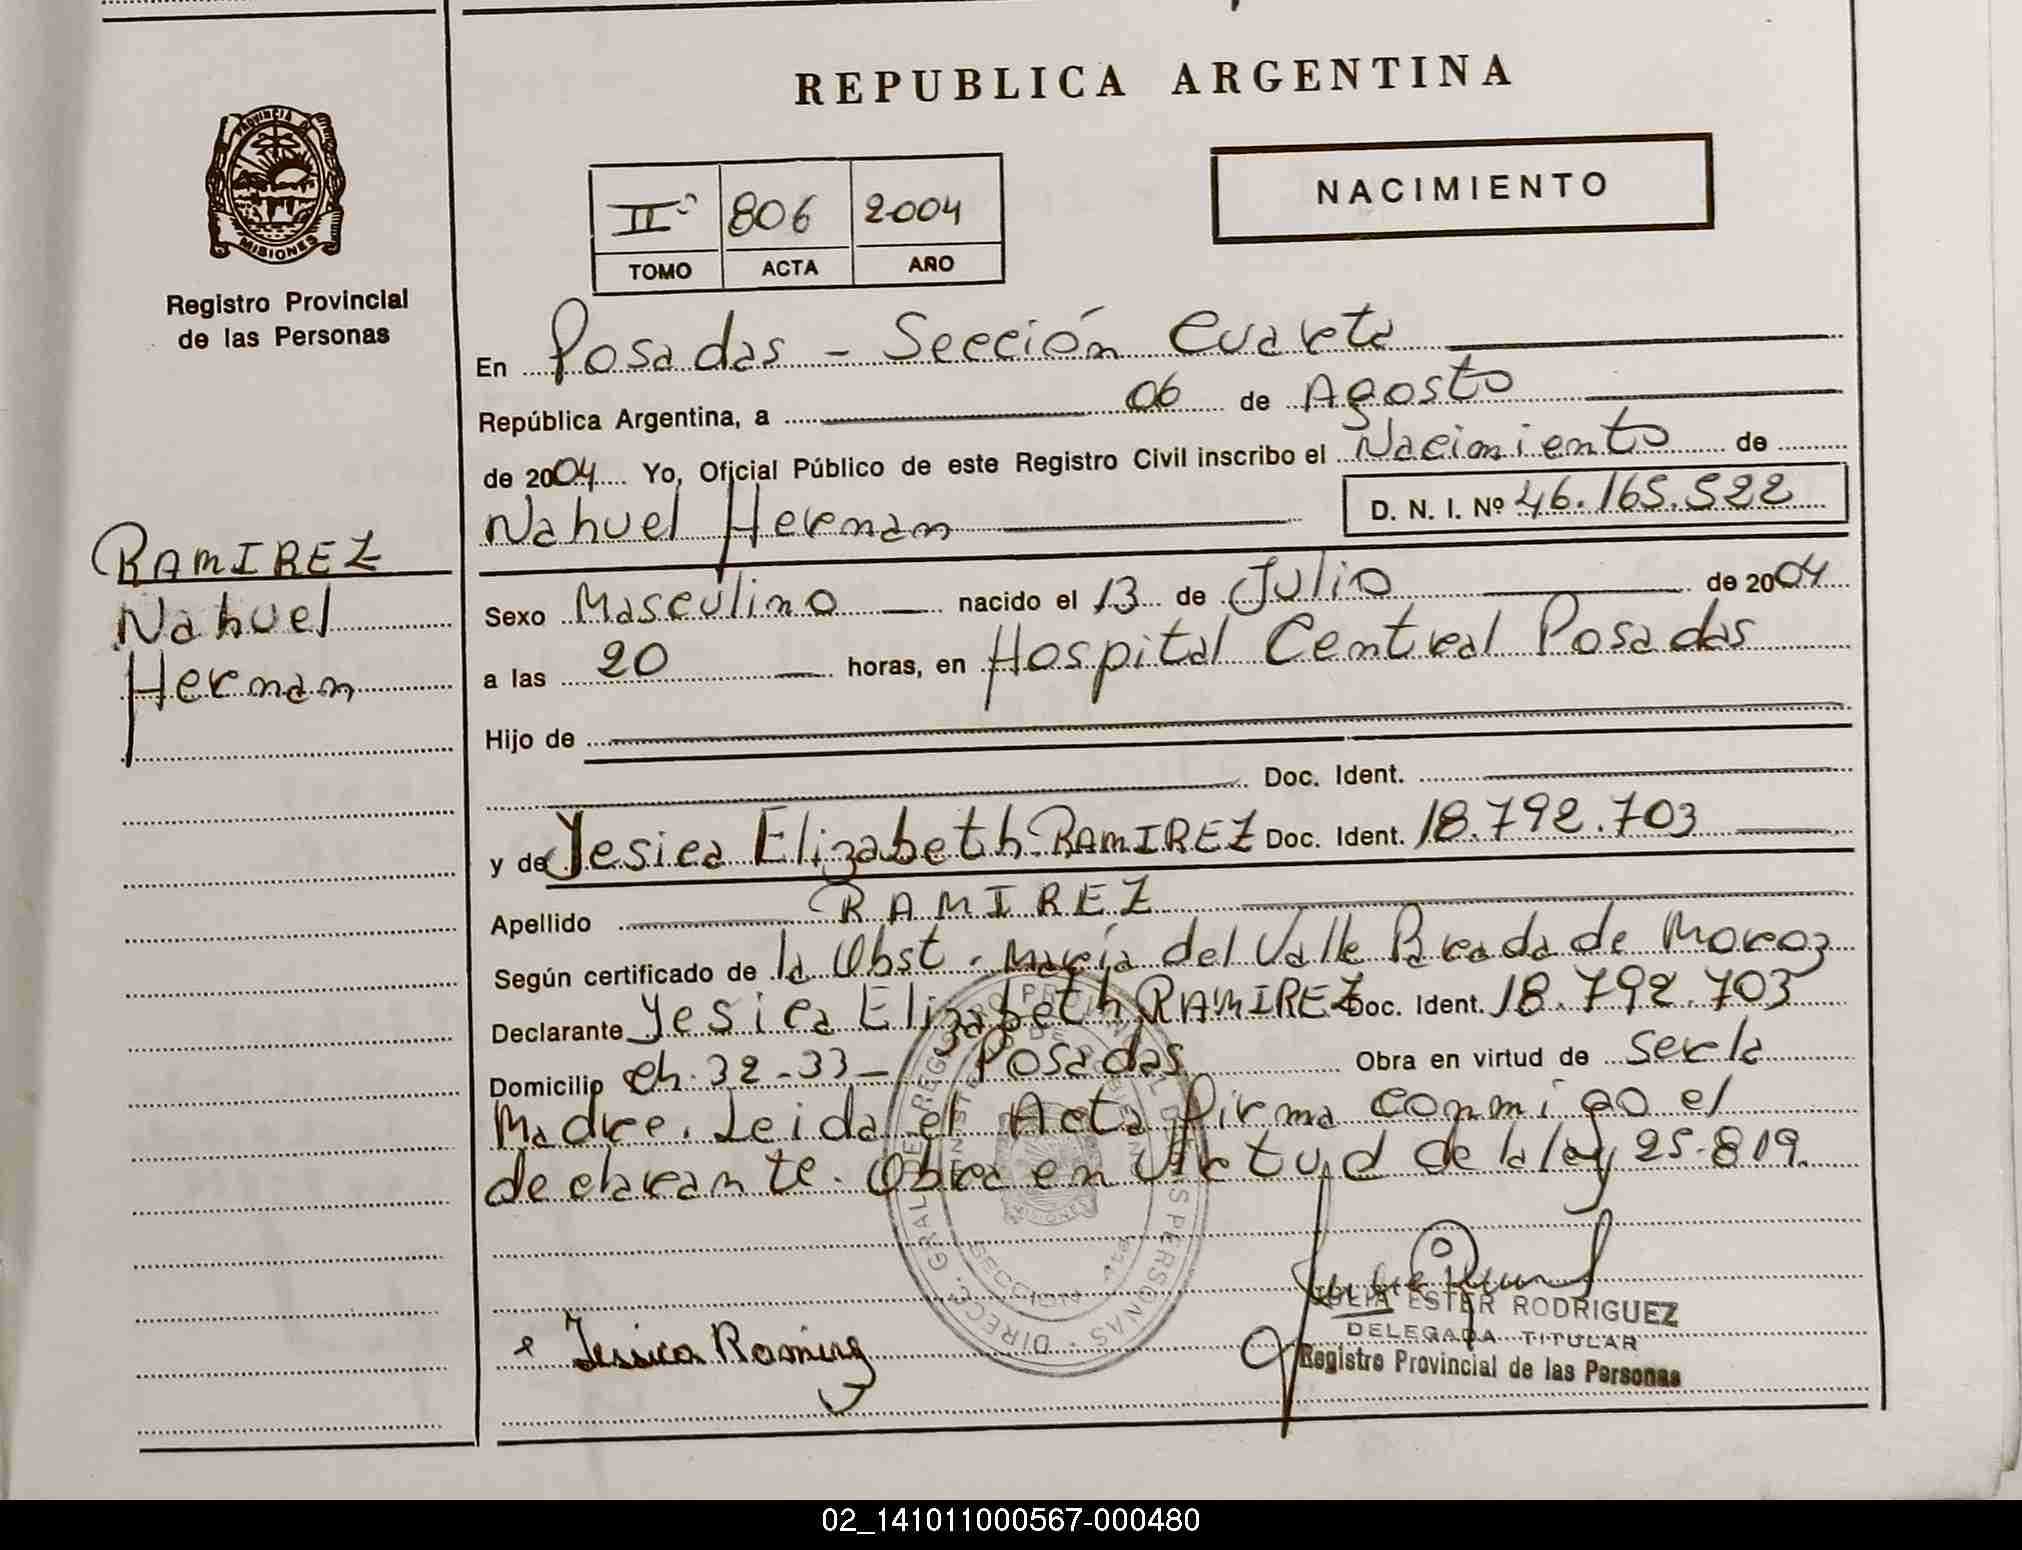 REPUBLICA ARGENTINA
PROVINCIA DE MISIONES
Registro Provincial
de las Personas
NACIMIENTO
IIº 806 2004
TOMO ACTA AÑO
En Posadas - Sección Cuarta
República Argentina, a 06 de Agosto
de 2004 Yo, Oficial Público de este Registro Civil inscribo el Nacimiento de
Nahuel Hernan D. N. I. Nº 46.165.522
RAMIREZ
Nahuel
Hernan
Sexo Masculino nacido el 13 de Julio de 2004
a las 20 horas, en Hospital Central Posadas
Hijo de
Doc. Ident.
y de Yesica Elizabeth RAMIREZ Doc. Ident. 18.792.703
Apellido RAMIREZ
Según certificado de la Obst. María del Valle Parada de Moroz
Declarante Yesica Elizabeth RAMIREZ Doc. Ident. 18.792.703
Domicilio Ch. 32-33- Posadas Obra en virtud de Ser la
Madre. Leida el Acta firma conmigo el
declarante. Obra en virtud de la ley 25.819.
Jessica Ramirez
ESTER RODRIGUEZ
DELEGADA TITULAR
Registro Provincial de las Personas
02_141011000567-000480